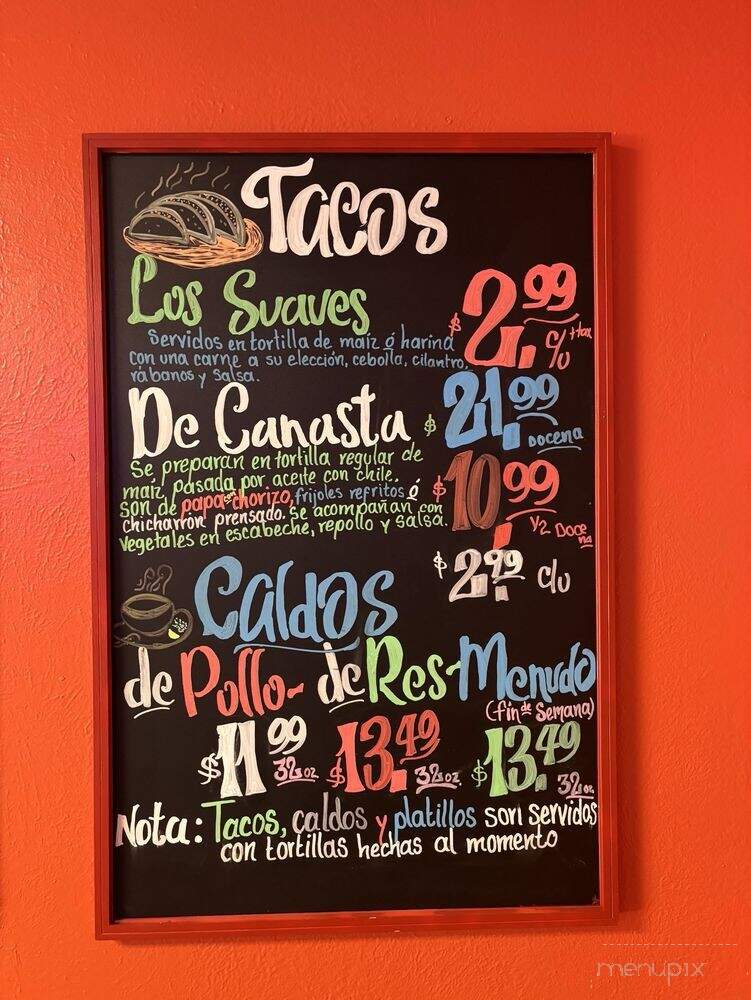 Tacos
Los Suaves
$2.99 c/u +tax
Servidos en tortilla de maíz ó harina
con una carne a su elección, cebolla, cilantro,
rábanos y salsa.
De Canasta
$21.99 Docena
Se preparan en tortilla regular de
maíz, pasada por aceite con chile.
Son de papa con chorizo, frijoles refritos ó
chicharrón prensado. Se acompañan con
vegetales en escabeche, repollo y salsa.
$10.99 1/2 Docena
$2.99 c/u
Caldos
de Pollo - de Res - Menudo
(fin de Semana)
$11.99 32oz $13.49 32oz $13.49 32oz
Nota: Tacos, caldos y platillos son servidos
con tortillas hechas al momento
menupix